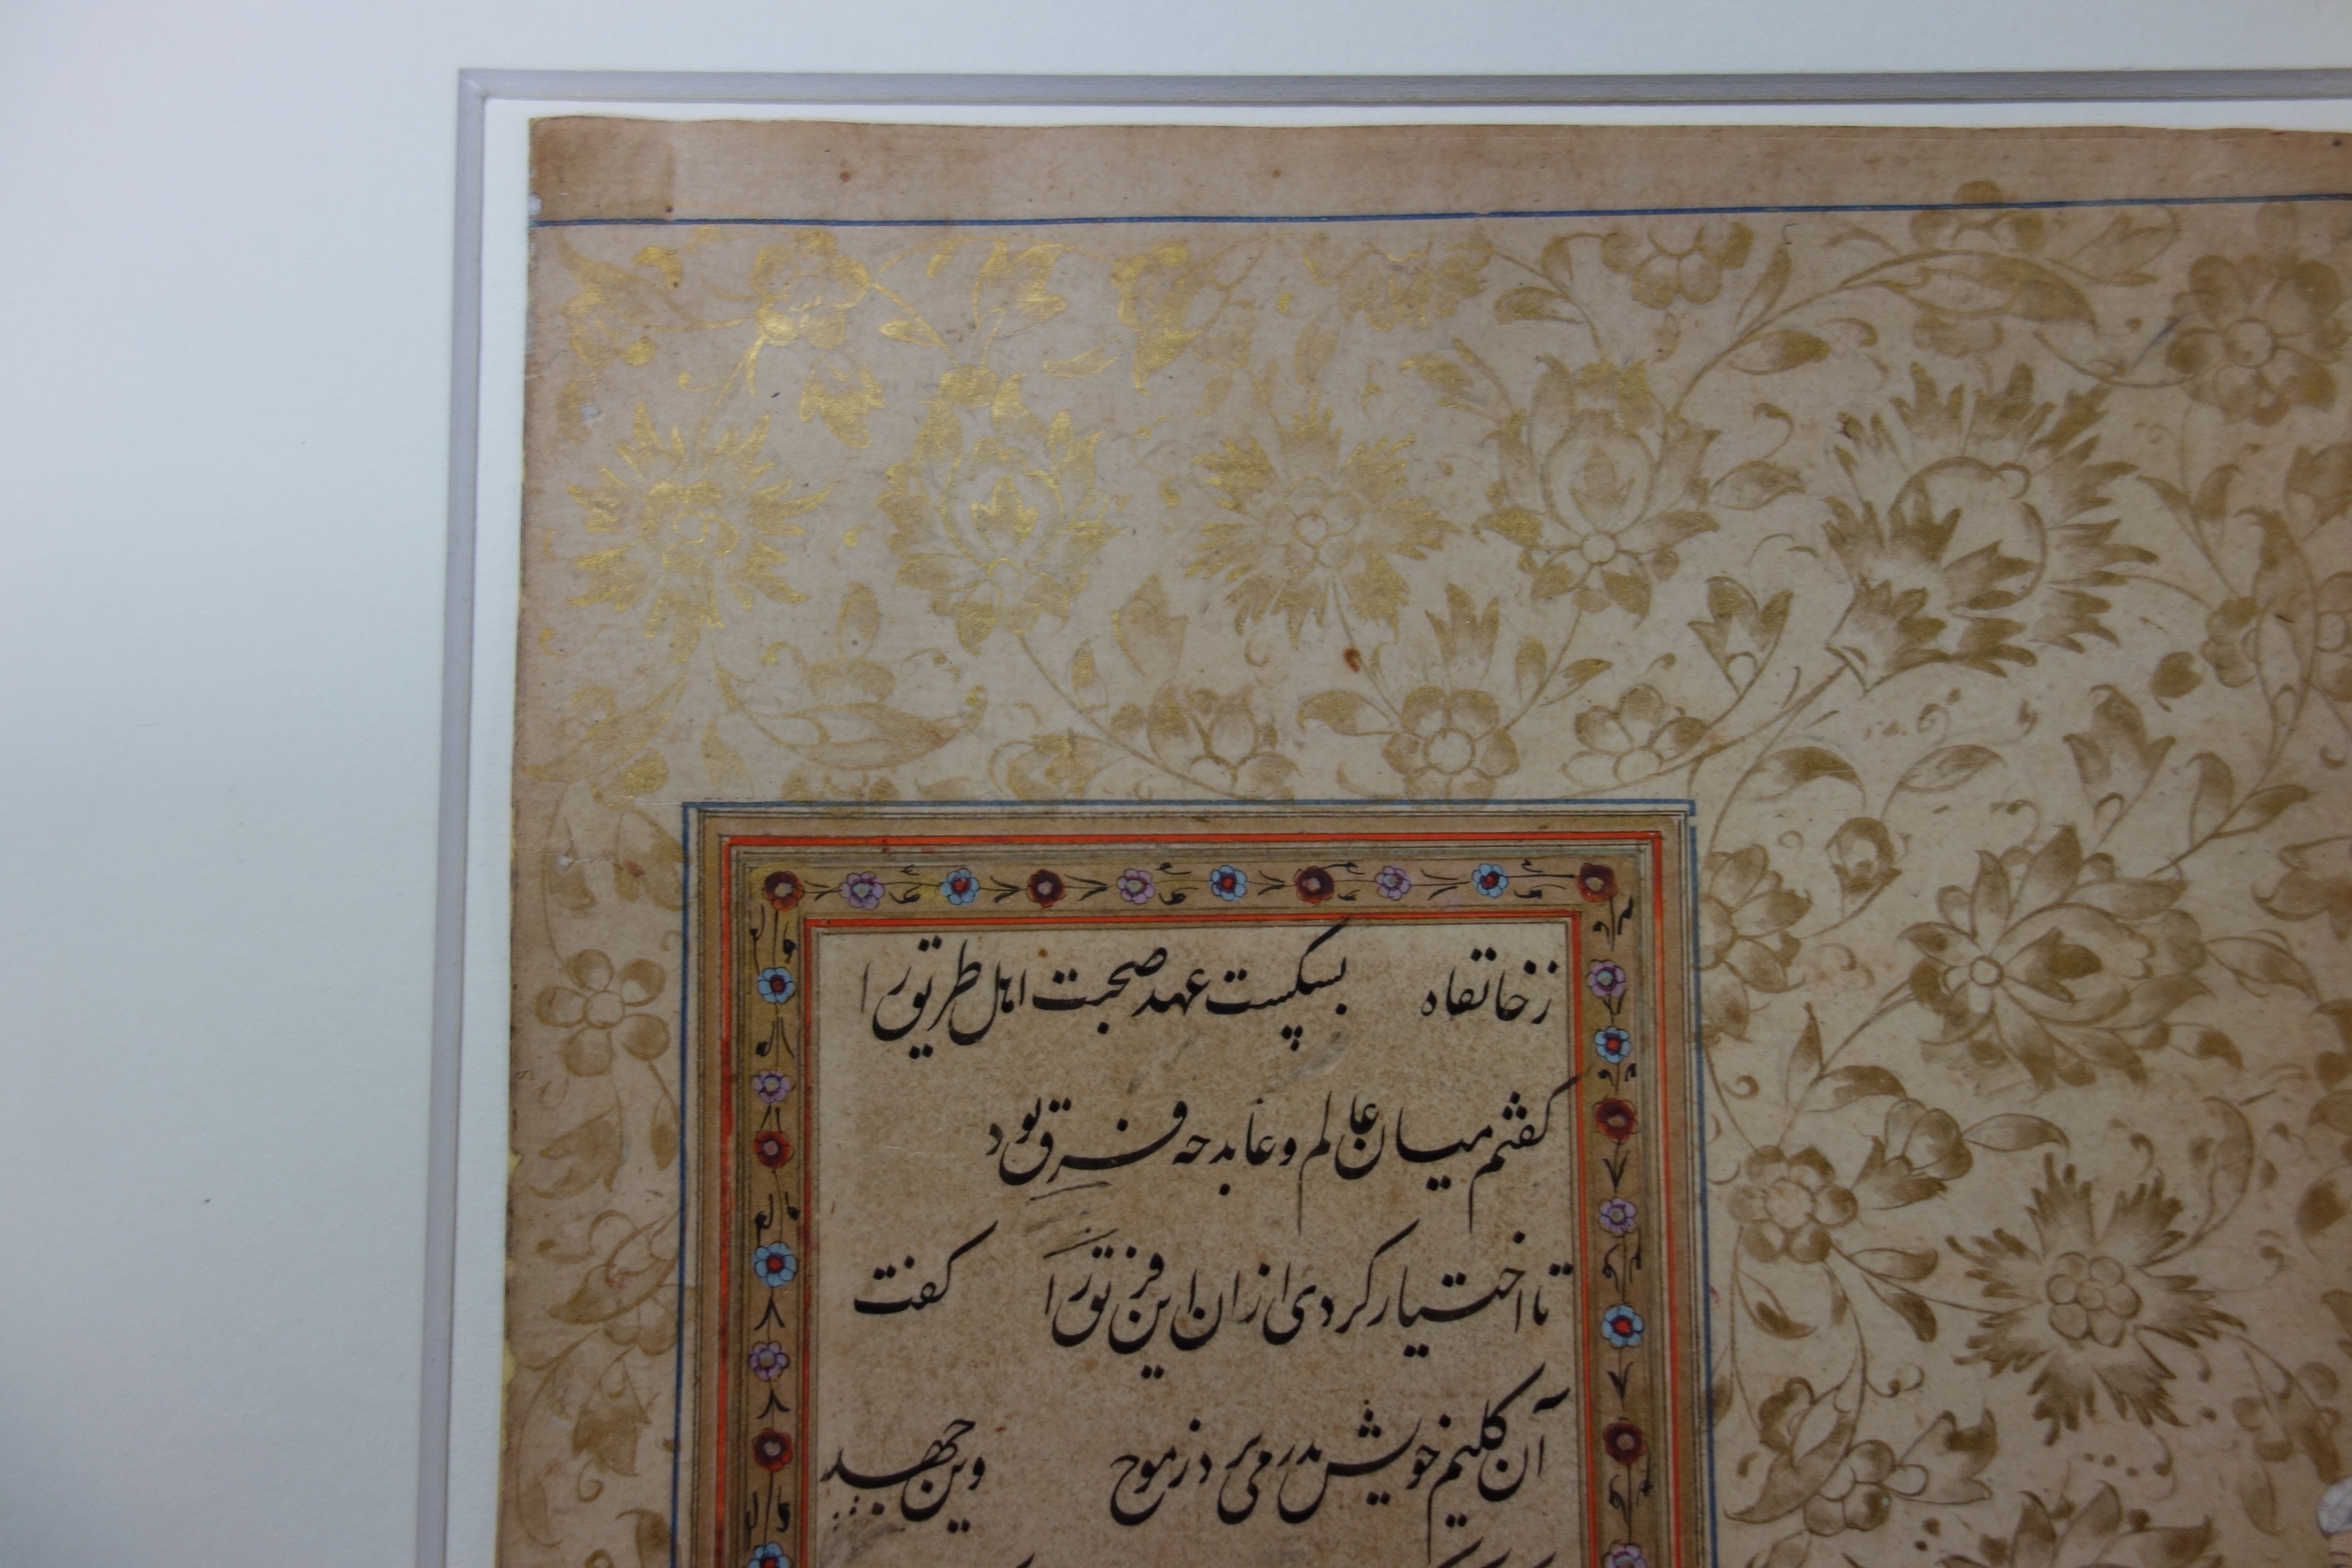 ز خانقاه بشکست عهد صحبت اهل طریق را
گفتم میان عالم و عابد چه فرق بود
تا اختیار کردی از ان این فریق را گفت
آن گلیم خویش بدر می برد ز موج وین جهد